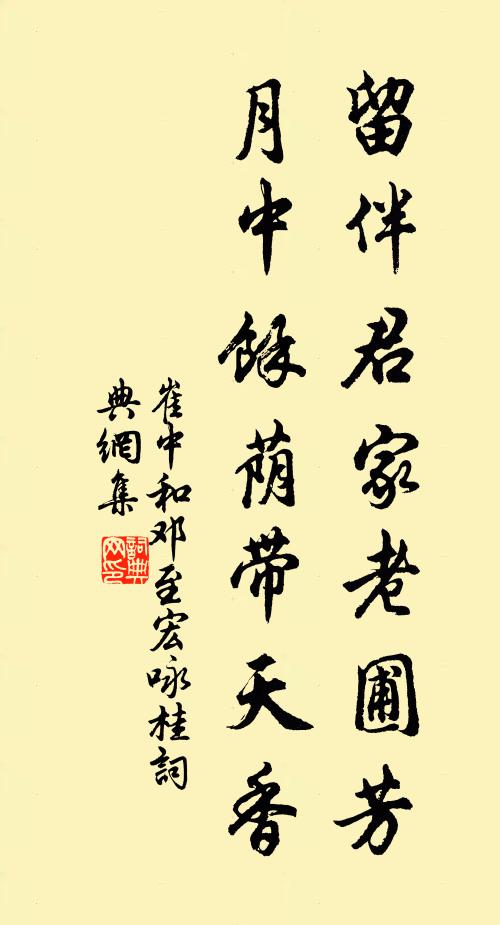 留伴君家老圃芳
月中餘荫带天香
崔中和邓至宏咏桂詞
典網集
詞典
网印